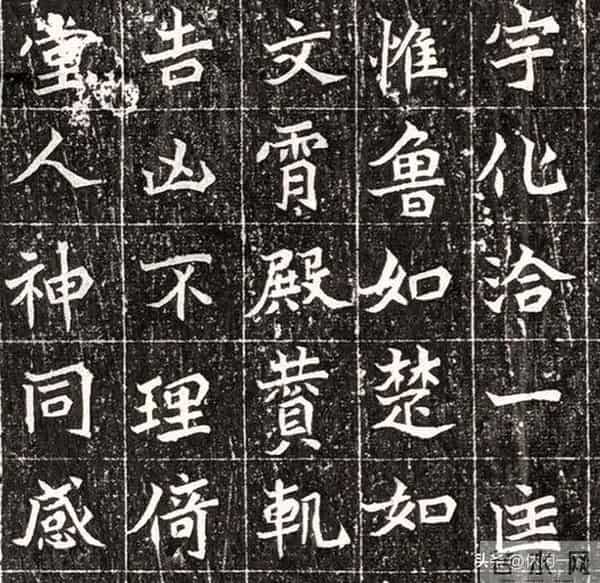 宇化洽一匡
惟魯如楚如
文霄殿軌
告凶不理倚
堂人神同感
头条@